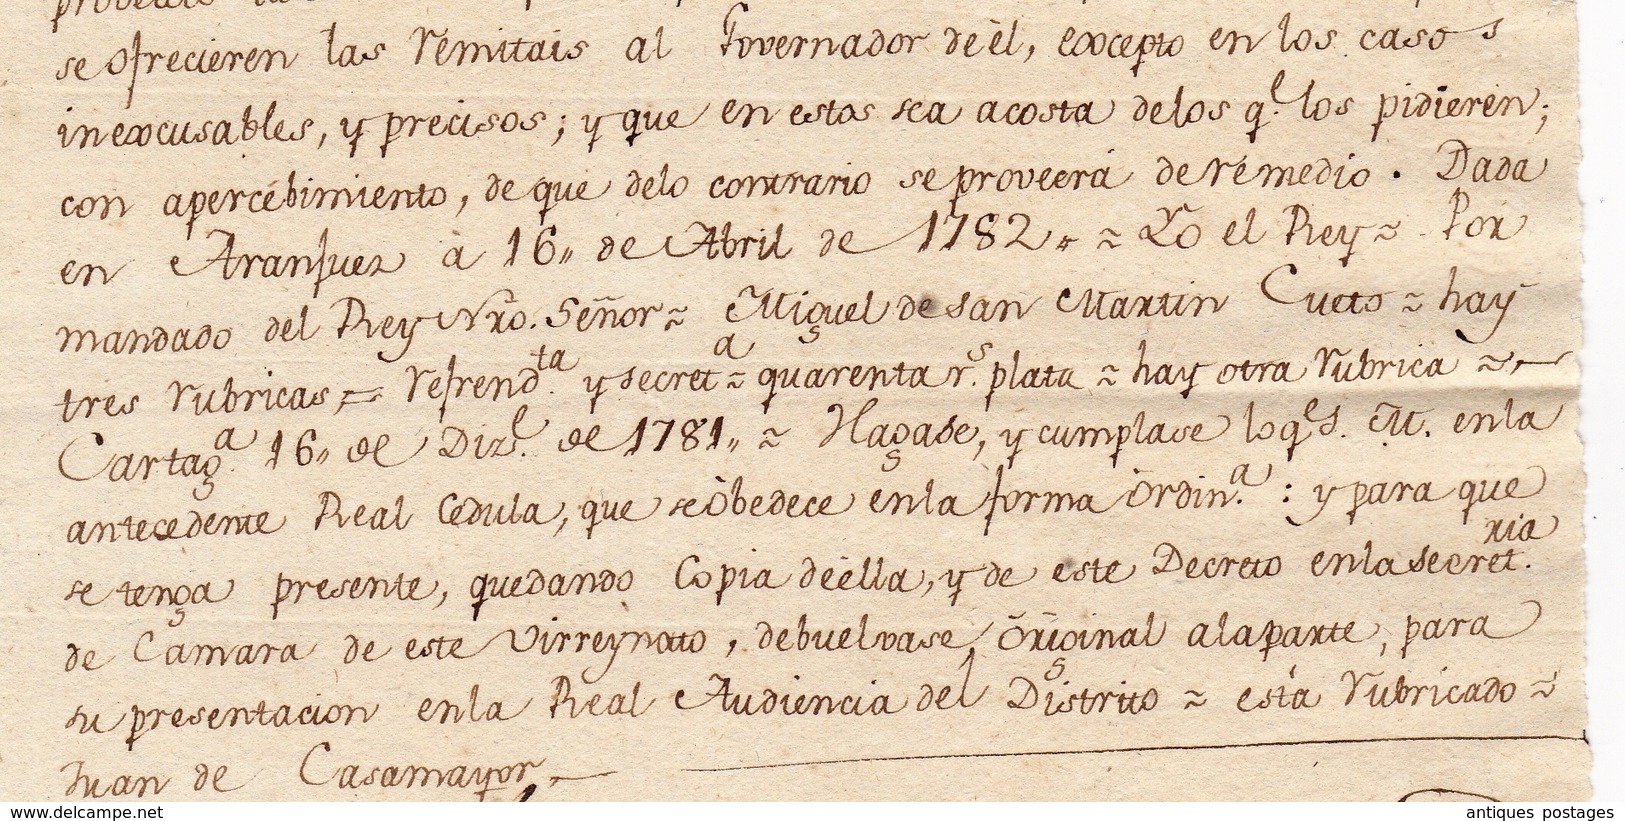 se ofrecieren las remitais al Governador de èl, excepto en los casos
inexcusables, y precisos; y que en estos sea acosta delos q.e los pidieren;
con apercebimiento, de que delo contrario se proveerá de remedio. Dada
en Aranjuez à 16,, de Abril de 1782,, ≈ Yo el Rey ≈ Por
mandado del Rey Nrõ. Señor ≈ Miguel de San Martin Cueto ≈ hay
tres rubricas = refrend.ta y secret.a ≈ quarenta r.s plata ≈ hay otra rubrica ≈
Cartag.a 16,, de Diz.e de 1781,, ≈ Hagase, y cumplase lo q.e S. M. enla
antecedente Real Cedula, que se òbedece enla forma Òrdin.a : y para que
se tenga presente, quedando Copia de èlla, y de este Decreto enla secret.ria
de Camara de este Virreynato, debuelvase òriginal alaparte, para
su presentacion enla Real Audiencia del Distrito ≈ està rubricado ≈
Juan de Casamayor
antiques_postages
www.delcampe.net